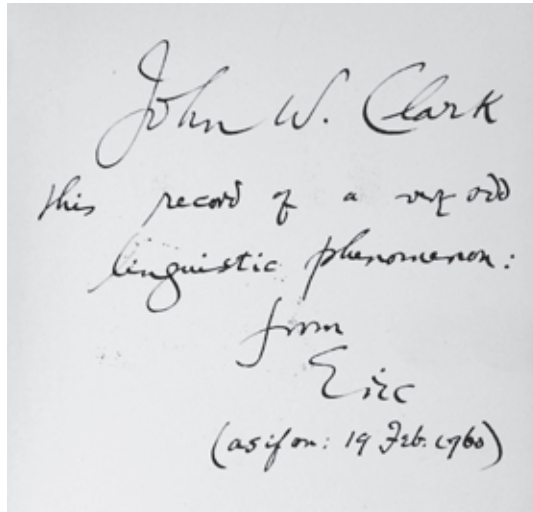 John W. Clark
this record of a very odd
linguistic phenomenon:
from
Eric
(as if on: 19 Feb. 1960)